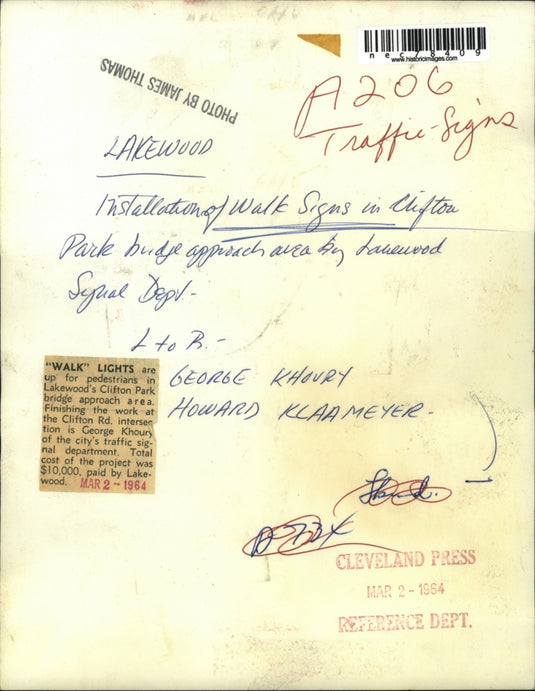 nec78409
www.historicimages.com
PHOTO BY JAMES THOMAS
A206
Traffic-Signs
LAKEWOOD
Installation of Walk Signs in Clifton
Park bridge approach area by Lakewood
Signal Dept.-
L to R.-
GEORGE KHOURY
HOWARD KLAAMEYER-
"WALK" LIGHTS are
up for pedestrians in
Lakewood's Clifton Park
bridge approach area.
Finishing the work at
the Clifton Rd. intersec-
tion is George Khoury
of the city's traffic sig-
nal department. Total
cost of the project was
$10,000, paid by Lake-
wood. MAR 2 - 1964
CLEVELAND PRESS
MAR 2 - 1964
REFERENCE DEPT.